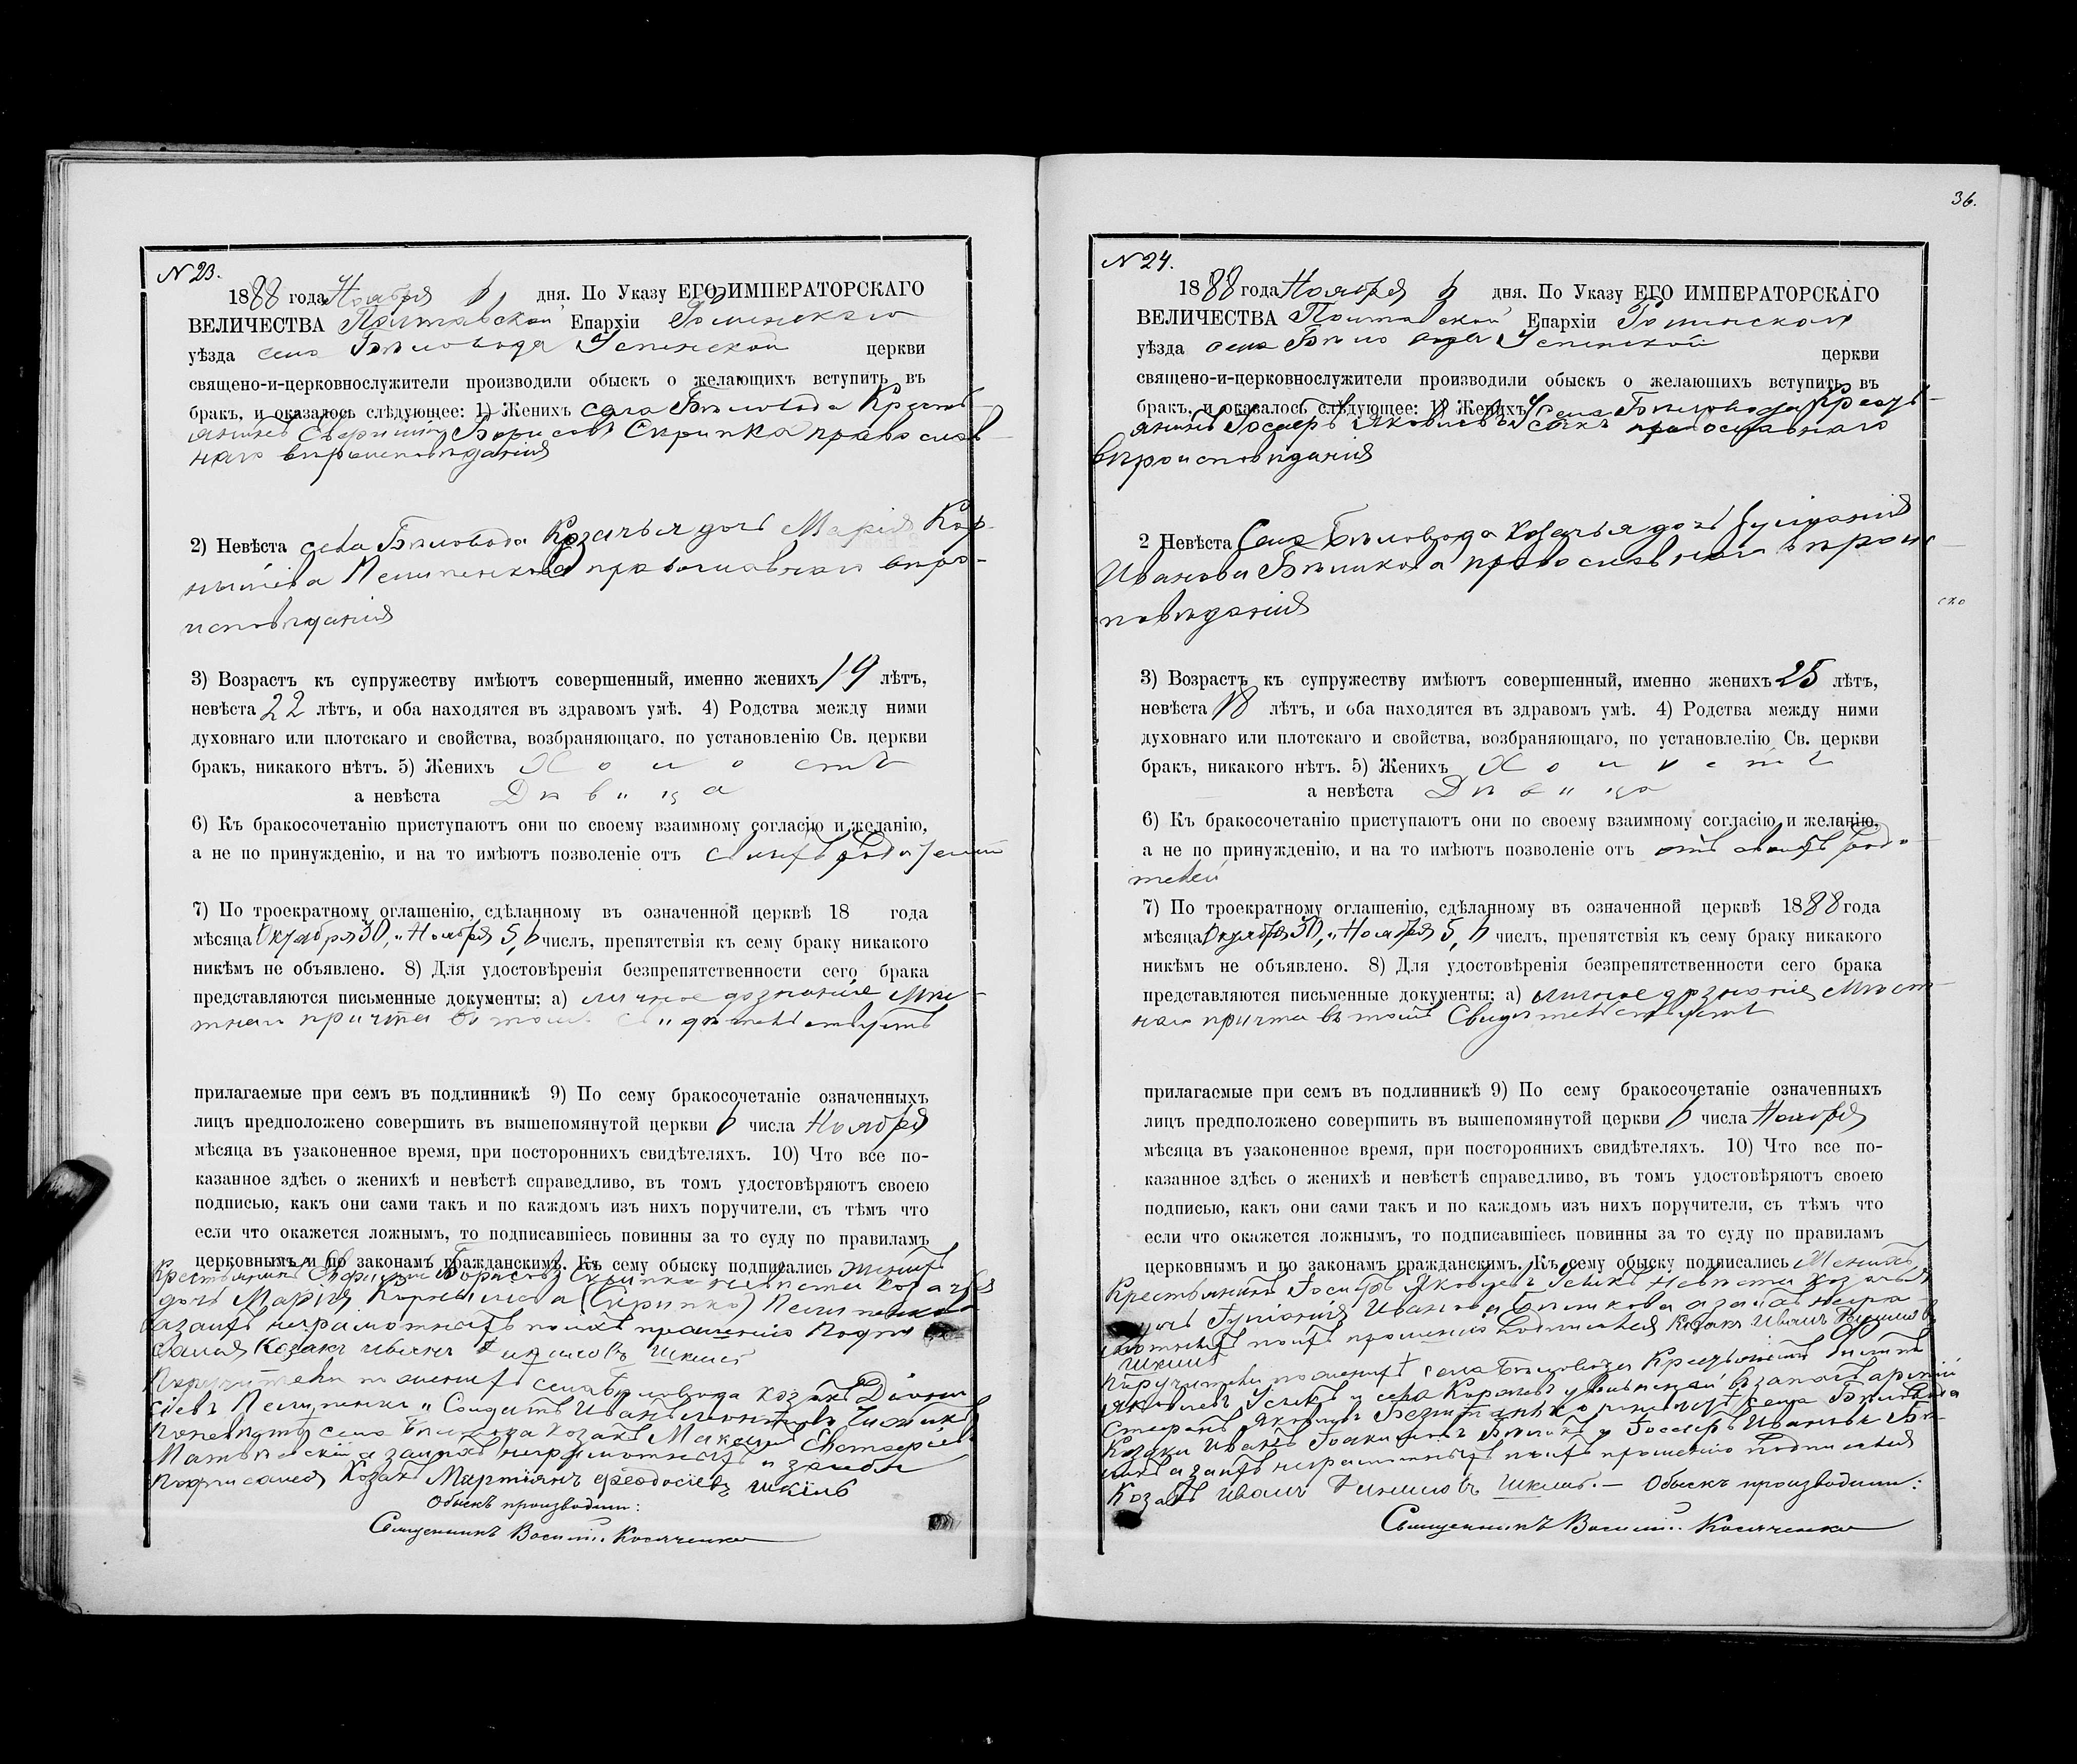 36.
N 23.
1888 года Ноября 6 дня. По Указу ЕГО ИМПЕРАТОРСКАГО
ВЕЛИЧЕСТВА Полтавской Епархіи Роменскаго
уѣзда села Бѣловода Успенской церкви
священо-и-церковнослужители производили обыскъ о желающихъ вступить въ
бракъ, и оказалось слѣдующее: 1) Женихъ села Бѣловода Кресть-
янинъ Борисовъ Скрипка православ-
наго вѣроисповѣданія
2) Невѣста села Бѣловода Козачья дочь Марія Кор-
ныліева Пелипенкова православнаго вѣро-
исповѣданія
3) Возрастъ къ супружеству имѣютъ совершенный, именно женихъ 19 лѣтъ,
невѣста 22 лѣтъ, и оба находятся въ здравомъ умѣ. 4) Родства между ними
духовнаго или плотскаго и свойства, возбраняющаго, по установленію Св. церкви
бракъ, никакого нѣтъ. 5) Женихъ Холостъ
а невѣста Дѣвица
6) Къ бракосочетанію приступаютъ они по своему взаимному согласію и желанію,
а не по принужденію, и на то имѣютъ позволеніе отъ своихъ родителей
7) По троекратному оглашенію, сдѣланному въ означенной церквѣ 18 года
мѣсяца Октября 30, и Ноября 5, 6 числъ, препятствія къ сему браку никакого
никѣмъ не объявлено. 8) Для удостовѣренія безпрепятственности сего брака
представляются письменные документы: а) личное дознаніе Мѣс-
тнаго причта въ томъ свидѣтельствуетъ
прилагаемые при семъ въ подлинникѣ 9) По сему бракосочетаніе означенныхъ
лицъ предположено совершить въ вышепомянутой церкви 6 числа Ноября
мѣсяца въ узаконенное время, при посторонних свидѣтеляхъ. 10) Что все по-
казанное здѣсь о женихѣ и невѣстѣ справедливо, въ томъ удостовѣряютъ своею
подписью, какъ они сами такъ и по каждомъ изъ нихъ поручители, съ тѣмъ что
если что окажется ложнымъ, то подписавшіесь повинны за то суду по правиламъ
церковнымъ и по законамъ гражданскимъ. Къ сему обыску подписались женихъ
Крестьянинъ Борисовъ Скрипка невѣста козачья
дочь Марія Корныліева (Скрипко) Пелипенкова
а за ихъ неграмотностъ по ихъ прошенію Подпи
сался Козакъ Иванъ Шкиль
Поручители по женихѣ села Бѣловода козакъ Діони
сіевъ Пелипенко и Солдатъ Иванъ
по невѣстѣ села Бѣловода козакъ Максимъ
а за ихъ неграмотностъ и за себя
Подписался Козакъ Мартіянъ Феодосіевъ Шкіль
Обыскъ производили:
Священникъ Василій Косяченко
N 24.
1888 года Ноября 6 дня. По Указу ЕГО ИМПЕРАТОРСКАГО
ВЕЛИЧЕСТВА Полтавской Епархіи Роменскаго
уѣзда села Бѣловода Успенской церкви
священо-и-церковнослужители производили обыскъ о желающихъ вступить въ
бракъ, и оказалось слѣдующее: 1) Женихъ села Бѣловода Кресть-
янинъ Іосифъ Яковлевъ Усикъ православнаго
вѣроисповѣданія
2 Невѣста Села Бѣловода козачья дочь Іуліанія
Иванова Бѣликова православнаго вѣроис-
повѣданія
3) Возрастъ къ супружеству имѣютъ совершенный, именно женихъ 25 лѣтъ,
невѣста 18 лѣтъ, и оба находятся въ здравомъ умѣ. 4) Родства между ними
духовнаго или плотскаго и свойства, возбраняющаго, по установлелію Св. церкви
бракъ, никакого нѣтъ. 5) Женихъ Холостъ
а невѣста Дѣвица
6) Къ бракосочетанію приступаютъ они по своему взаимному согласію и желанію,
а не по принужденію, и на то имѣютъ позволеніе отъ отъ своихъ роди-
телей
7) По троекратному оглашенію, сдѣланному въ означенной церквѣ 1888 года
мѣсяца Октября 30, и Ноября 5, 6 числъ, препятствія къ сему браку никакого
никѣмъ не объявлено. 8) Для удостовѣренія безпрепятственности сего брака
представляются письменные документы: а) личное дознаніе Мѣст-
наго причта въ томъ Свидѣтельствуетъ
прилагаемые при семъ въ подлинникѣ 9) По сему бракосочетаніе означенныхъ
лицъ предположено совершить въ вышепомянутой церкви 6 числа Ноября
мѣсяца въ узаконенное время, при постороннихъ свидѣтеляхъ. 10) Что все по-
казанное здѣсь о женихѣ и невѣстѣ справедливо, въ томъ удостовѣряютъ своею
подписью, какъ они сами такъ и по каждомъ изъ нихъ поручители, съ тѣмъ что
если что окажется ложнымъ, то подписавшіесь повинны за то суду по правиламъ
церковнымъ и по законамъ гражданскимъ. Къ сему обыску подписались Женихъ
Крестьянинъ Іосифъ Яковлевъ Усикъ Невѣста козачья
дочь Іуліанія Иванова Бѣликова а за ихъ негра-
мотностъ по ихъ прошенію Подписался Козакъ Иванъ
Шкиль
Поручители по женихѣ села Бѣловода Крестьянинъ
Яковлевъ Усикъ и села запасъ армій
Стефанъ Яковлевъ по невѣстѣ села Бѣловода
Козаки Иванъ и Іосифъ Ивановъ Бѣ-
ликъ а за ихъ неграмотностъ по ихъ прошенію подписался
Козакъ Иванъ Шкиль. — Обыскъ производили:
Священникъ Василій Косяченко